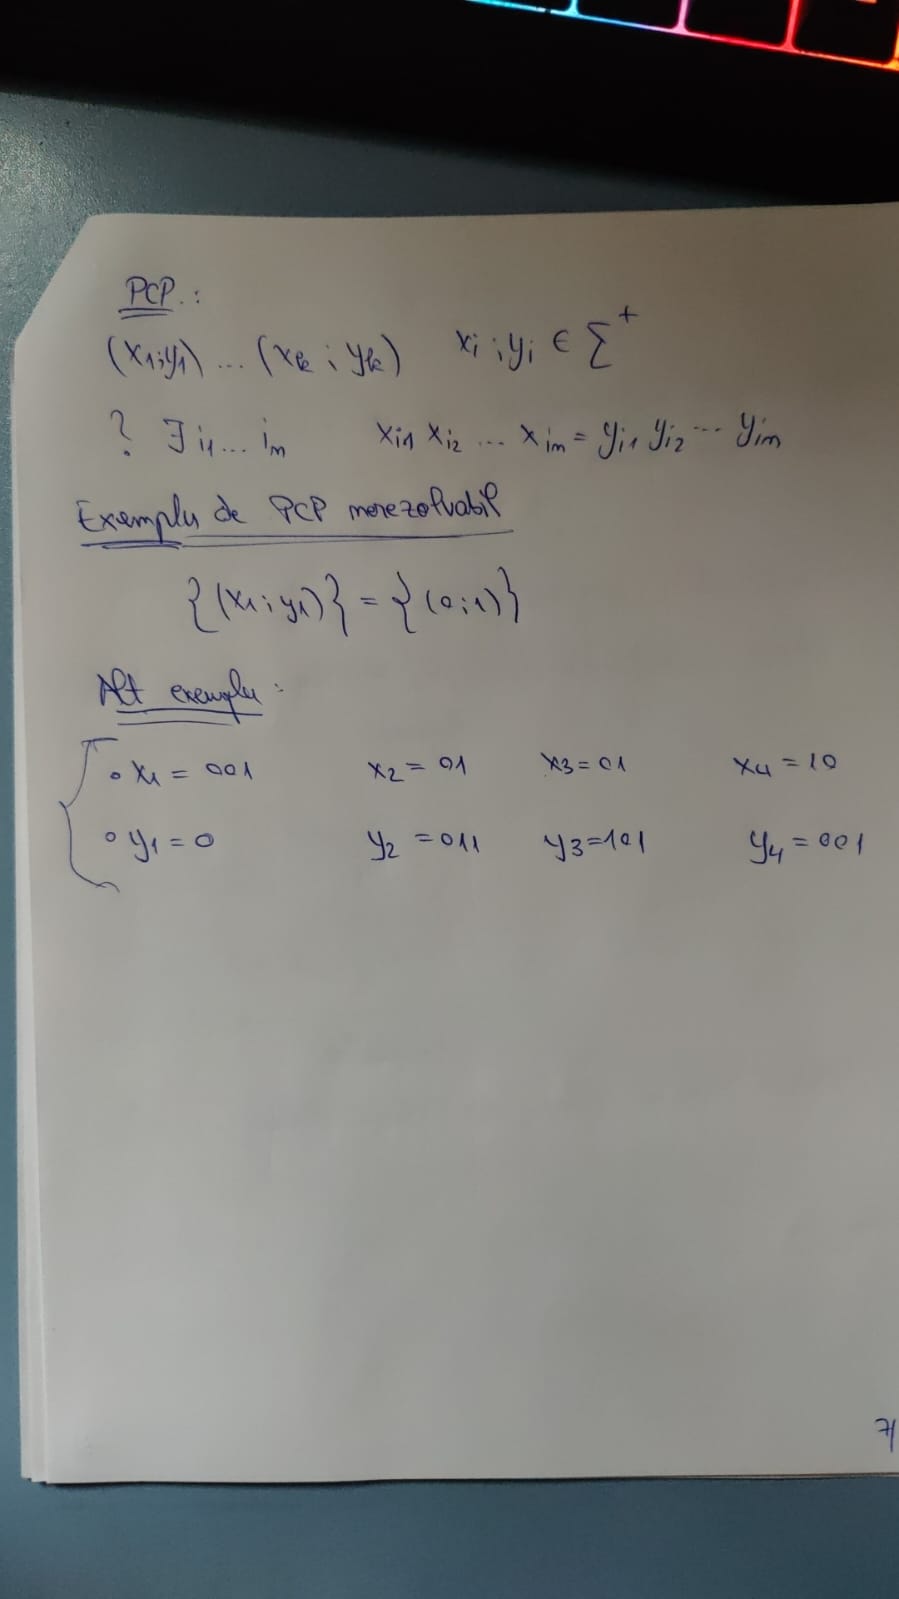 PCP.:
(x1;y1) ... (xk ; yk) xi ; yi ∈ Σ+
? ∃ i1 ... im xi1 xi2 ... xim = yi1 yi2 ... yim
Exemplu de PCP nerezolvabil
{(x1;y1)} = {(0;1)}
Alt exemplu :
x1 = 001 x2 = 01 x3 = 01 x4 = 10
y1 = 0 y2 = 011 y3 = 101 y4 = 001
7